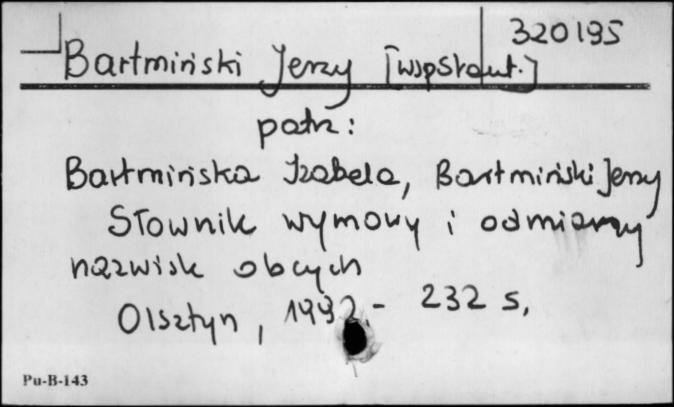 320195
Bartmiński Jerzy [współaut.]
patrz:
Bartmińska Izabela, Bartmiński Jerzy
Słownik wymowy i odmiany
nazwisk obcych
Olsztyn, 1992. - 232 s.
Pu-B-143